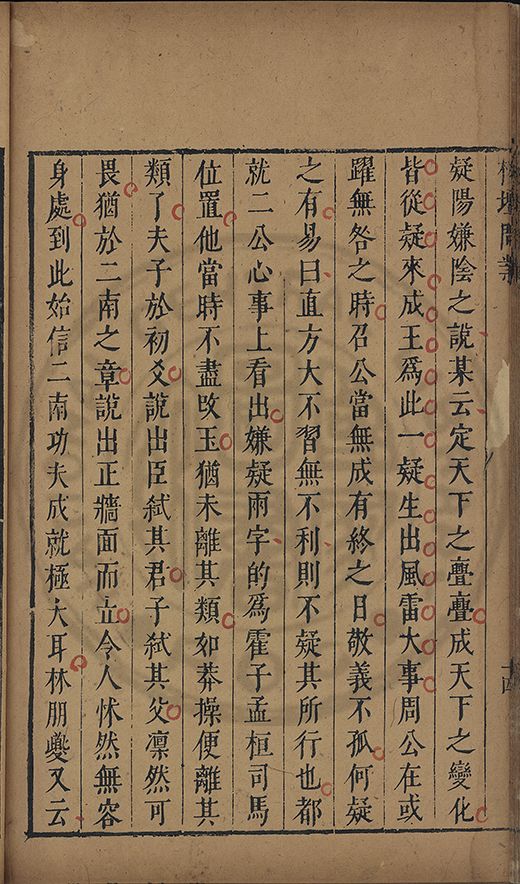 榕壇問業
十四
疑陽嫌陰之說某云定天下之亹亹成天下之變化
皆從疑來成王為此一疑生出風雷大事周公在或
躍無咎之時召公當無成有終之日敬義不孤何疑
之有易曰直方大不習無不利則不疑其所行也都
就二公心事上看出嫌疑兩字的為霍子孟桓司馬
位置他當時不盡攺玉猶未離其類如莽操便離其
類了夫子於初爻說出臣弒其君子弒其父凜然可
畏猶於二南之章說出正牆面而立令人怵然無容
身處到此始信二南功夫成就極大耳林朋夔又云